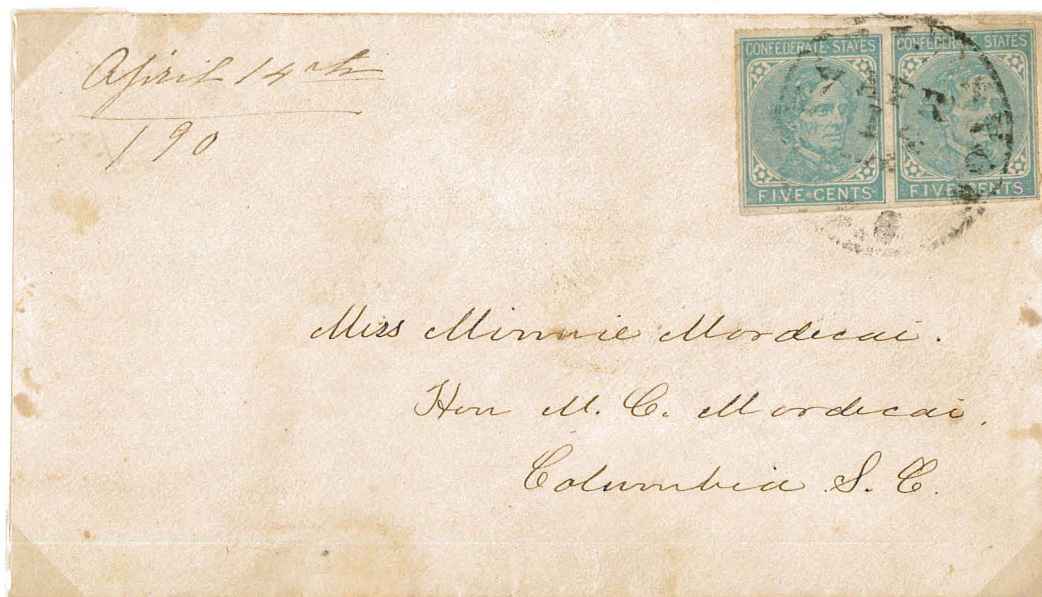 April 14th
190
CONFEDERATE STATES CONFEDERATE STATES
FIVE CENTS FIVE CENTS
Miss Minnie Mordecai.
Hon M. C. Mordecai,
Columbia S. C.